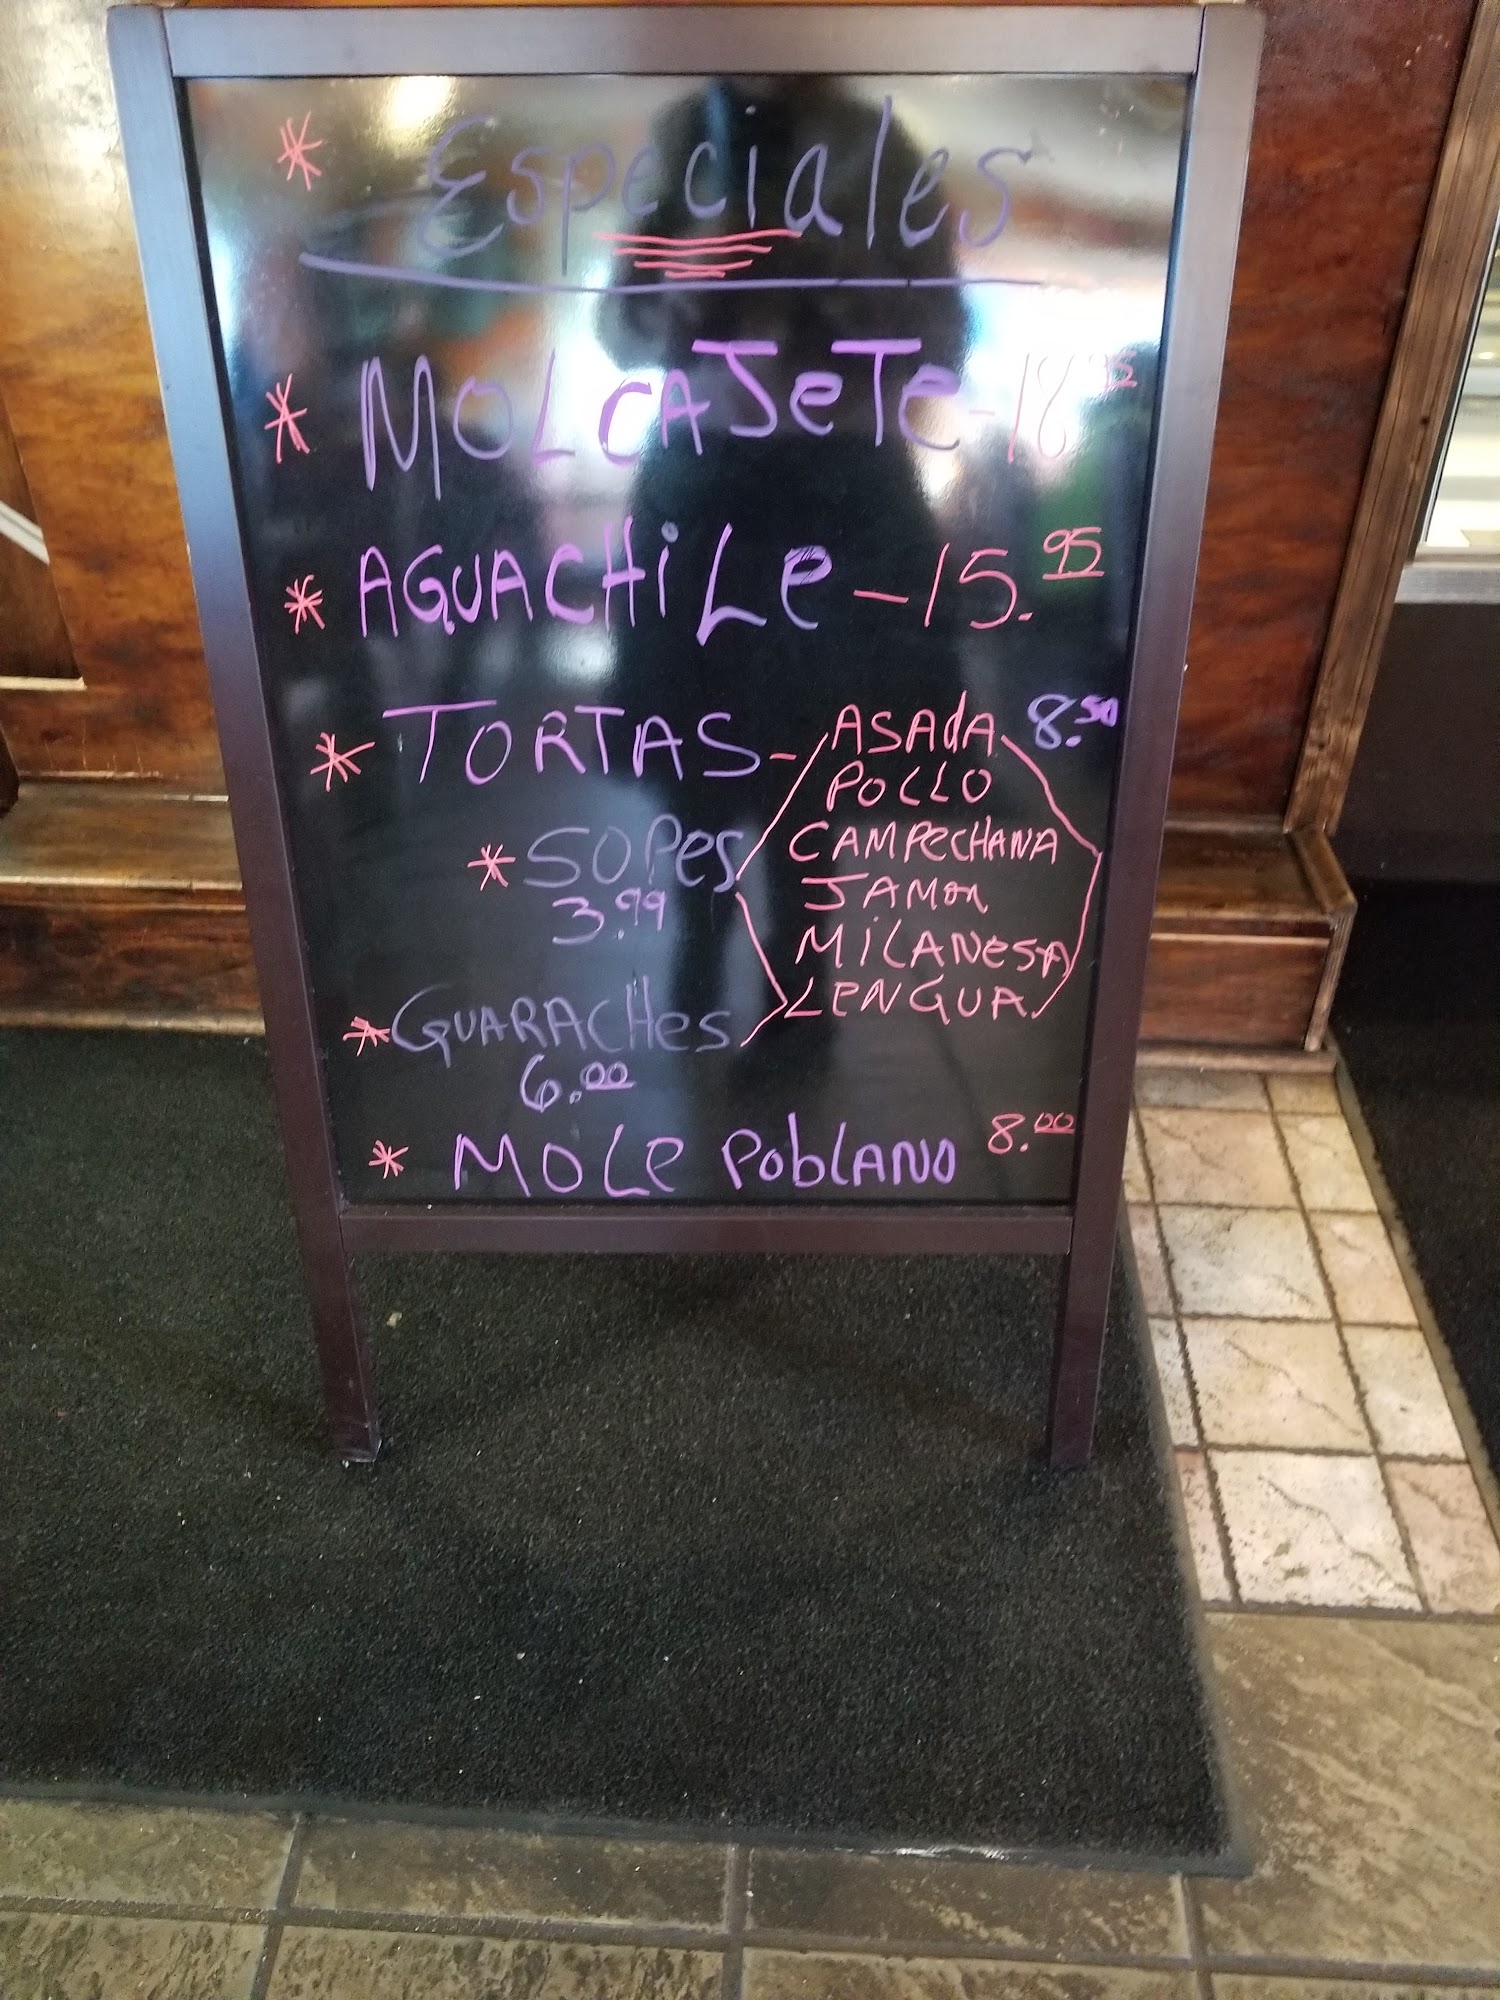 * Especiales
* MOLCAJeTe - 18.95
* AGUACHiLe - 15.95
* TORTAS - ASAdA 8.50
POLLO
* SOPes CAMPeCHANA
3.99 JAMON
MiLANesA
* GUARACHes LENGUA
6.00
* MOLe PobLANO 8.00